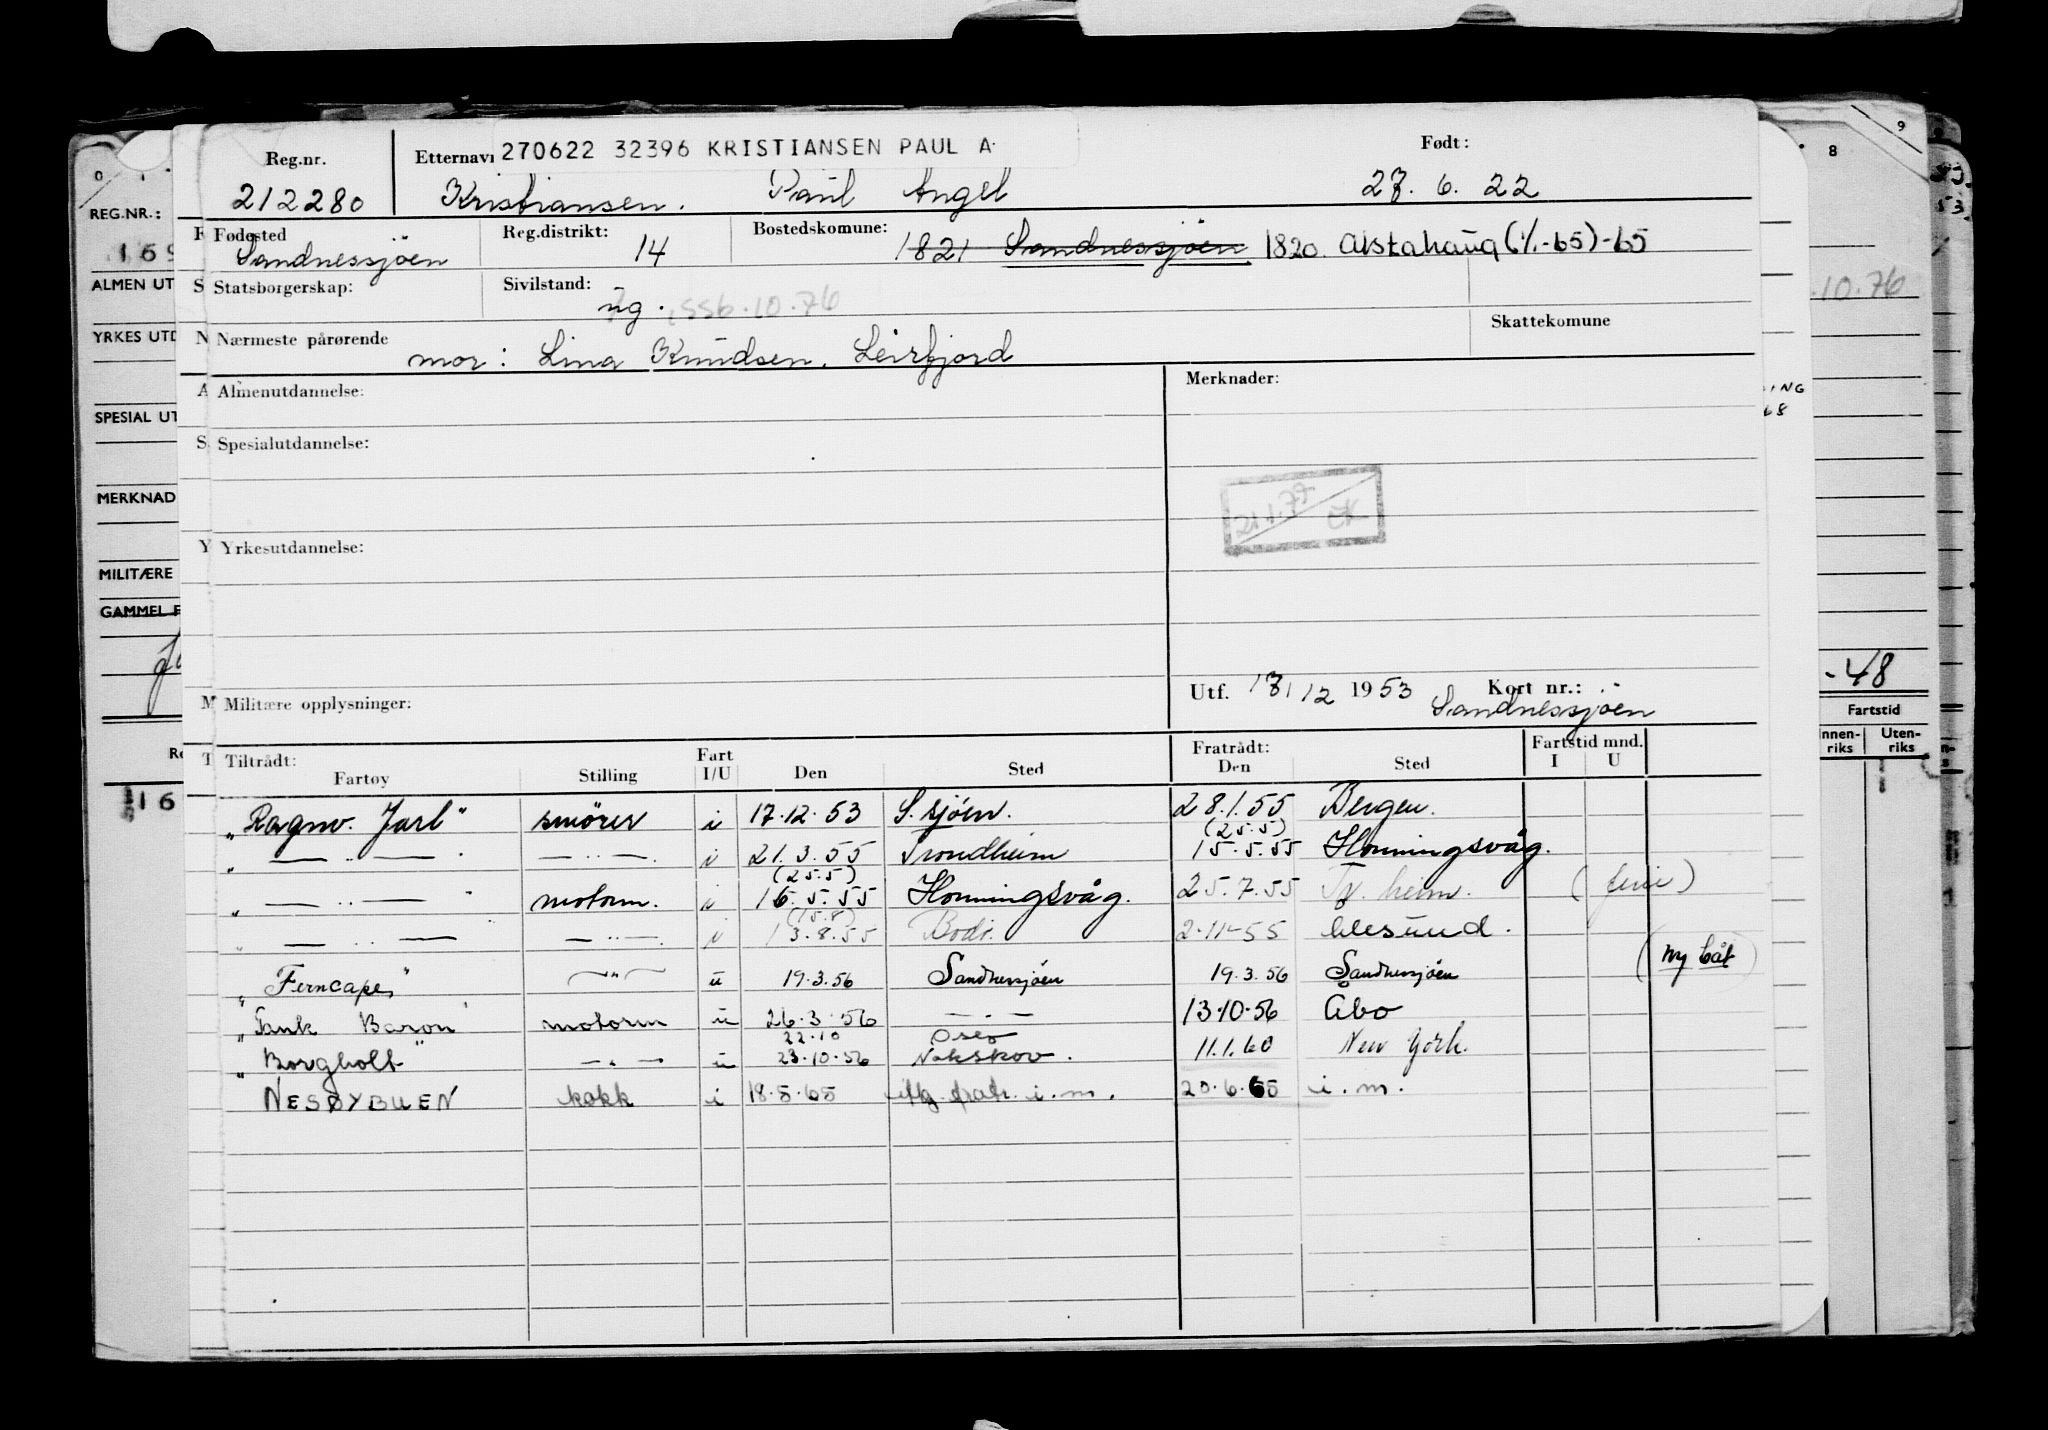 9
0 1 8
Reg.nr. Etternavn 270622 32396 KRISTIANSEN PAUL A Født:
212280 Kristiansen. Paul Angel 27. 6. 22
REG.NR.: Fødested Reg.distrikt: 14 Bostedskomune: 1821 Sandnessjøen 1820. Alstahaug (1/1-65)-65
169 Sandnessjöen
ALMEN UT S Statsborgerskap: Sivilstand: ug. 556.10.76 .10.76
YRKES UTD N Nærmeste pårørende Skattekomune
mor: Lina Knudsen. Leirfjord
A Almenutdannelse: Merknader:
SPESIAL UT
S Spesialutdannelse:
MERKNAD 21.1.77 EK
Y Yrkesutdannelse:
MILITÆRE
GAMMEL F
-48
M Militære opplysninger: Utf. 13/12 1953 Kort nr.:
Sandnessjöen
Fartstid
T Tiltrådt: Fart Fratrådt: Fartstid mnd. Innen-riks Uten-riks
Fartøy Stilling I/U Den Sted Den Sted I U
16
"Ragnv. Jarl" smörer i 17.12.53 S.sjöen. 28.1.55 Bergen.
(25.5)
" — .. — — .. — i 21.3.55 Trondheim 15.5.55 Honningsvåg.
(25.5)
" — .. — " motorm. i 16.5.55 Honningsvåg. 25.7.55 Tr. heim. (ferie)
(15.8)
" — .. — — .. — i 13.8.55 Bodö. 2.11-55 Ålesund.
"Ferncape" — " — u 19.3.56 Sandnessjöen 19.3.56 Sandnessjöen (ny båt)
"Tank Baron" motorm u 26.3.56 — . — 13.10.56 Åbo
22.10 Oslo
"Borgholt" — . — u 23.10.56 Nakskov. 11.1.60 New York.
NESØYBUEN kokk i 18.5.65 iflg. fratr. i.m. 20.6.65 i.m.